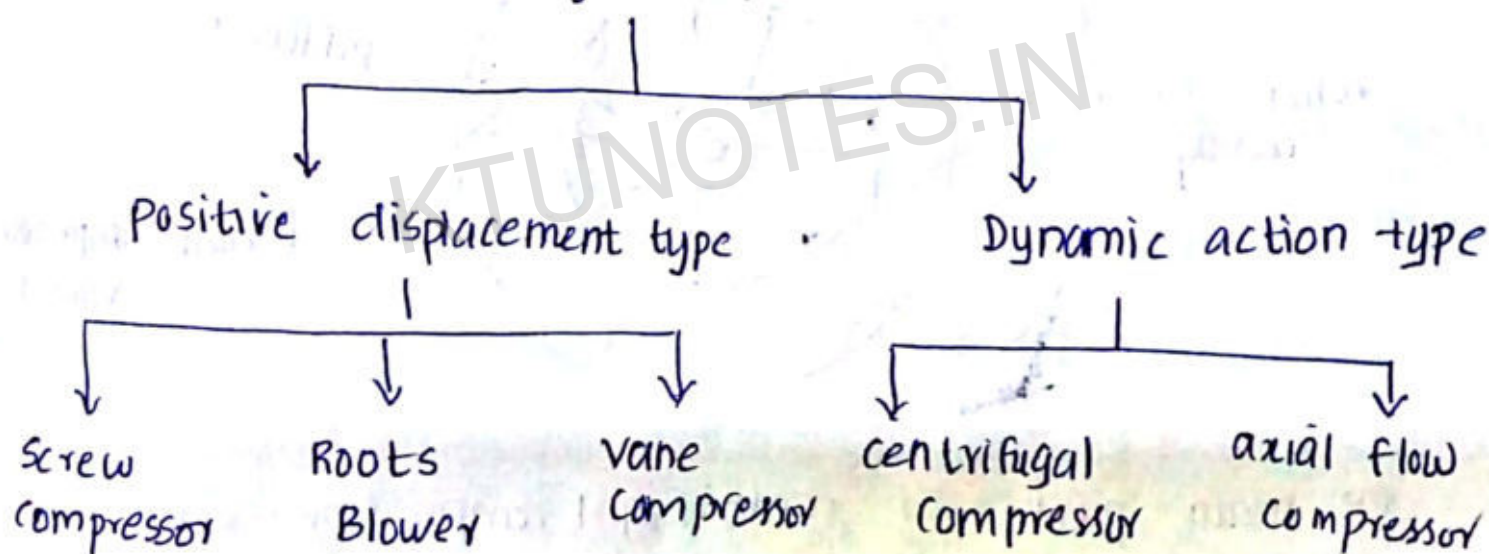 KTUNOTES.IN
Positive displacement type
Dynamic action type
Screw
compressor
Roots
Blower
vane
compressor
centrifugal
compressor
axial flow
compressor